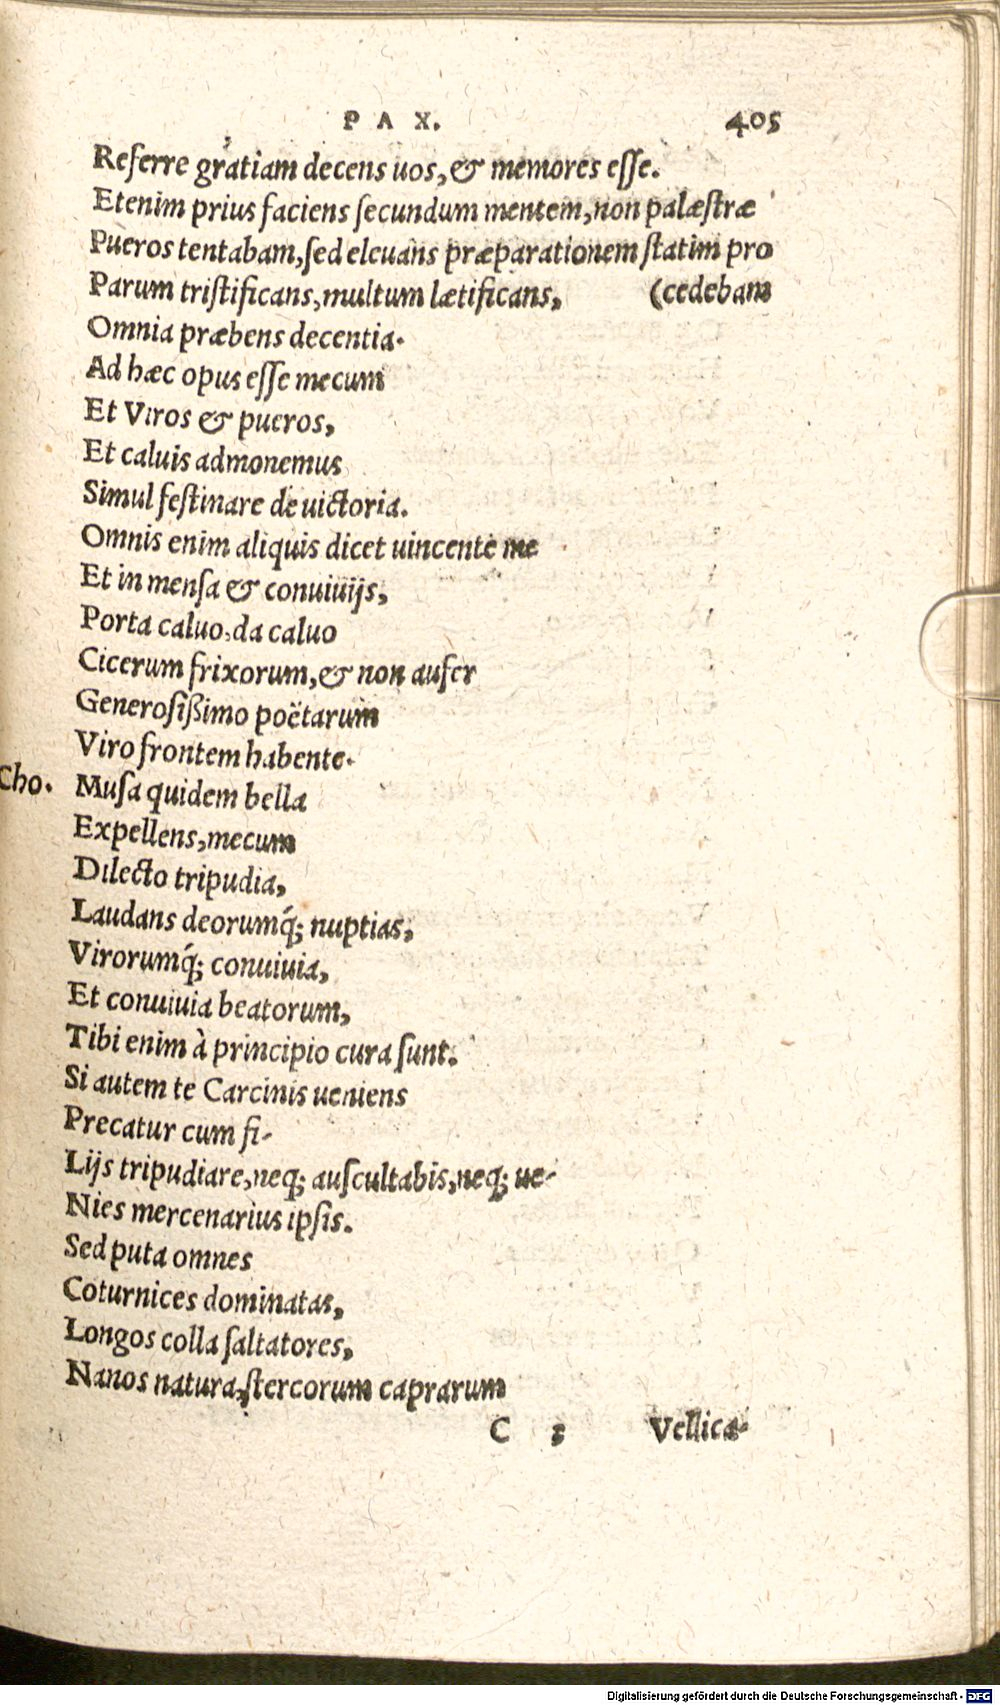 PAX. 405
Referre gratiam decens uos, & memores esse.
Etenim prius faciens secundum mentem, non palæstræ
Pueros tentabam, sed eleuans præparationem statim pro
Parum tristificans, multum lætificans, (cedebam
Omnia præbens decentia.
Ad hæc opus esse mecum
Et Viros & pueros,
Et caluis admonemus
Simul festinare de uictoria.
Omnis enim aliquis dicet uincente me
Et in mensa & conuiuijs,
Porta caluo, da caluo
Cicerum frixorum, & non aufer
Generosißimo poëtarum
Viro frontem habente.
Cho. Musa quidem bella
Expellens, mecum
Dilecto tripudia,
Laudans deorumq́; nuptias,
Virorumq́; conuiuia,
Et conuiuia beatorum,
Tibi enim à principio cura sunt.
Si autem te Carcinis ueniens
Precatur cum fi-
Lijs tripudiare, neq; auscultabis, neq; ue-
Nies mercenarius ipsis.
Sed puta omnes
Coturnices dominatas,
Longos colla saltatores,
Nanos natura, stercorum caprarum
C 3 Vellica-
Digitalisierung gefördert durch die Deutsche Forschungsgemeinschaft - DFG